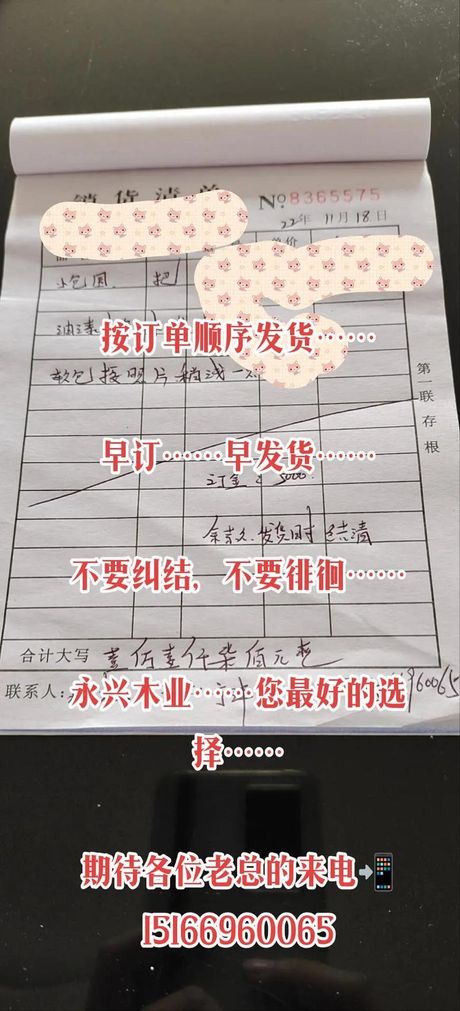 销货清单 №8365575
22年 11月 18日
单价
小包圆 把
油漆
按订单顺序发货······
软包按照片稍浅一点
第一联存根
早订······早发货······
订金: 5000.
余款发货时结清
不要纠结，不要徘徊······
合计大写 元
联系人： 960065
永兴木业······您最好的选
择······
期待各位老总的来电📲
15166960065